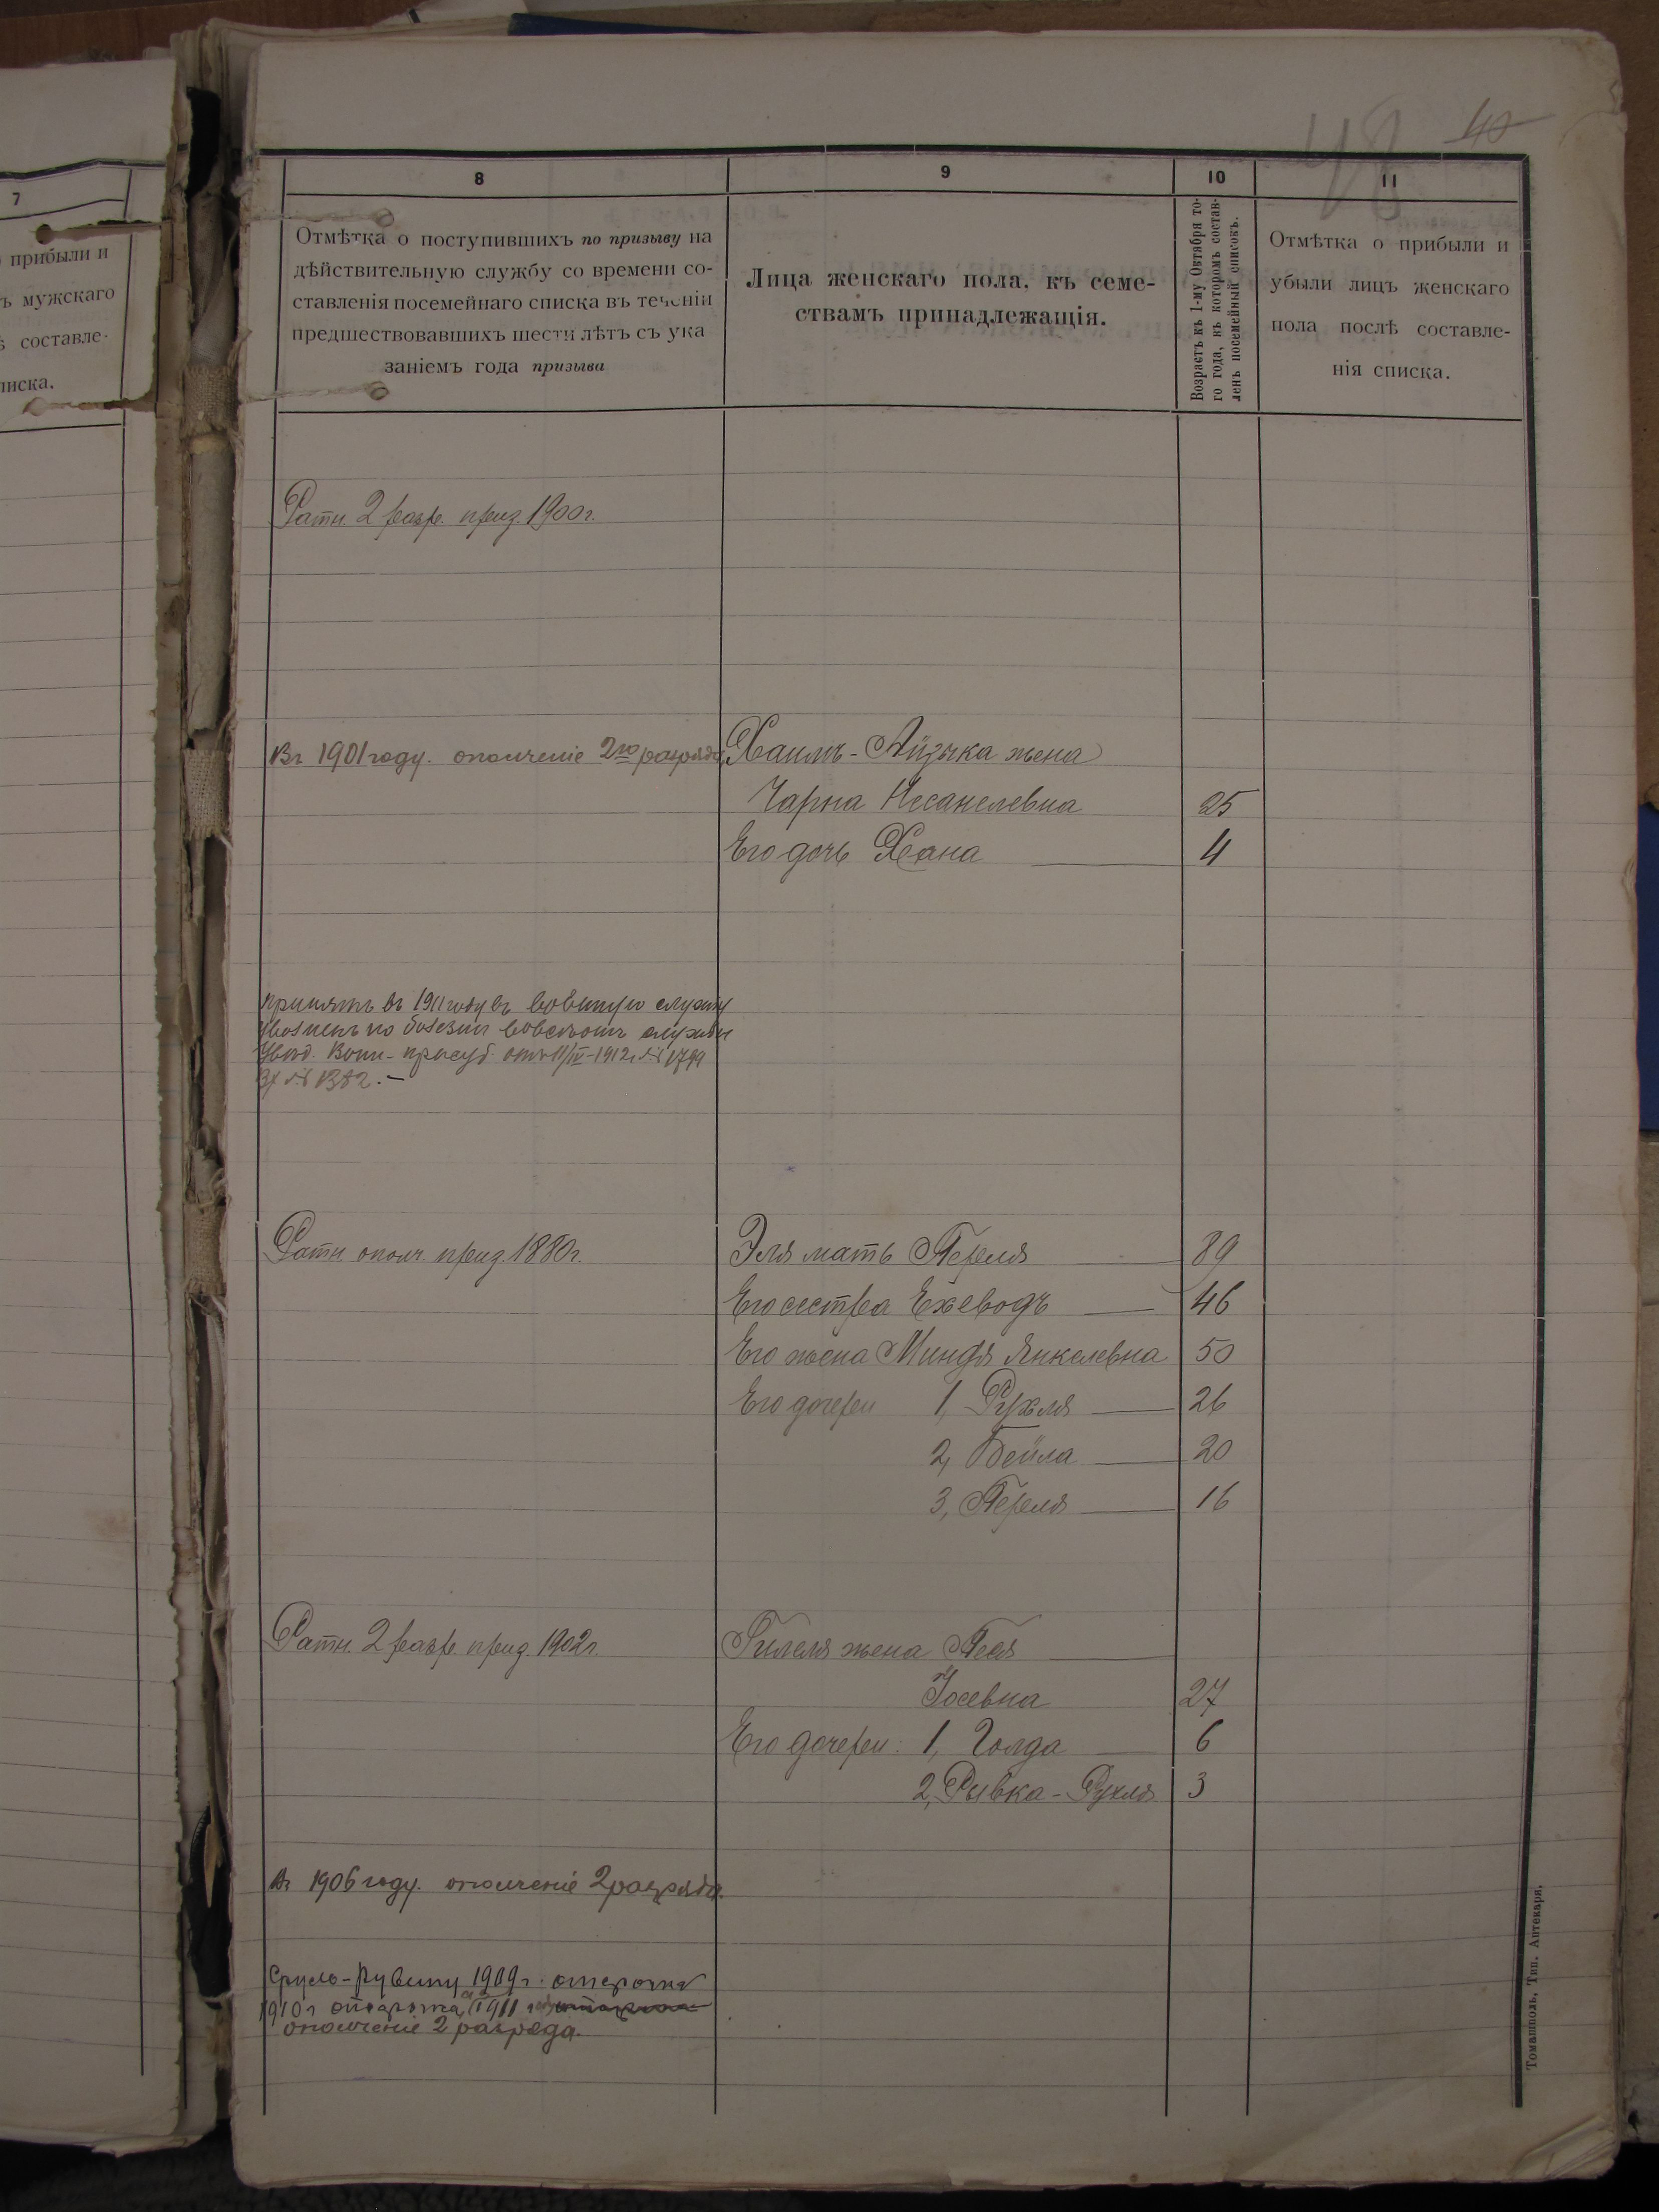 40
48
7
8
9
10
11
прибыли и
ъ мужскаго
составле-
писка.
Отмѣтка о поступившихъ по призыву на
дѣйствительную службу со времени со-
ставленія посемейнаго списка въ теченіи
предшествовавшихъ шести лѣтъ съ ука
заніемъ года призыва
Лица женскаго пола, къ семе-
ствамъ принадлежащія.
Возрастъ къ 1-му Октября то-
го года, въ которомъ состав-
ленъ посемейный списокъ.
Отмѣтка о прибыли и
убыли лицъ женскаго
пола послѣ составле-
нія списка.
Ратн. 2 разр. приз. 1900 г.
Въ 1901 году. ополченіе 2го разряда
Хаимъ-Айзика жена
Чарна 25
Его дочь Хана 4
Принятъ въ 1911 году въ службу
по болѣзни службы
1912 г. № 1799
Вх № 1382.-
Ратн ополч. приз. 1880 г.
Эля мать Переля 89
Его сестра Ехеводъ 46
Его жена Миндя Янкелевна 50
Его дочери 1, Рухля 26
2, Бейла 20
3, Переля 16
Ратн. 2 разр. приз. 1902 г.
Гилеля жена Песя
Іосевна 27
Его дочери: 1, Голда 6
2, Рывка-Рухля 3
Въ 1906 году. ополченіе 2 разряда.
Сруль-Рувину 1909 г. отсрочка
1910 г отсрочка 1911 г отсрочка
ополченіе 2 разряда.
Томашполь, Тип. Аптекаря.